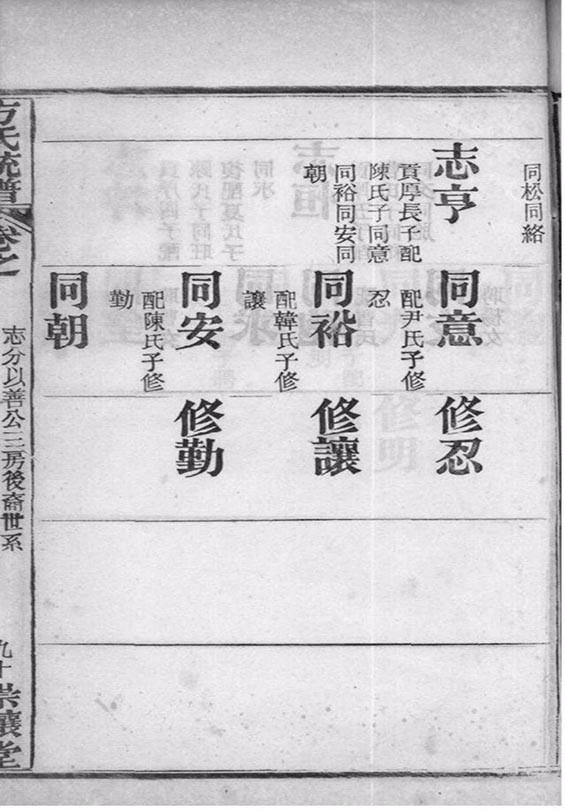 同松同絡
志亨
貢厚長子配
陳氏子同意
同裕同安同
朝
同意
配尹氏子修
忍
同裕
配韓氏子修
讓
同安
配陳氏子修
勤
同朝
修忍
修讓
修勤
方氏統譜
卷之一
志分以善公三房後裔世系
九十
崇讓堂